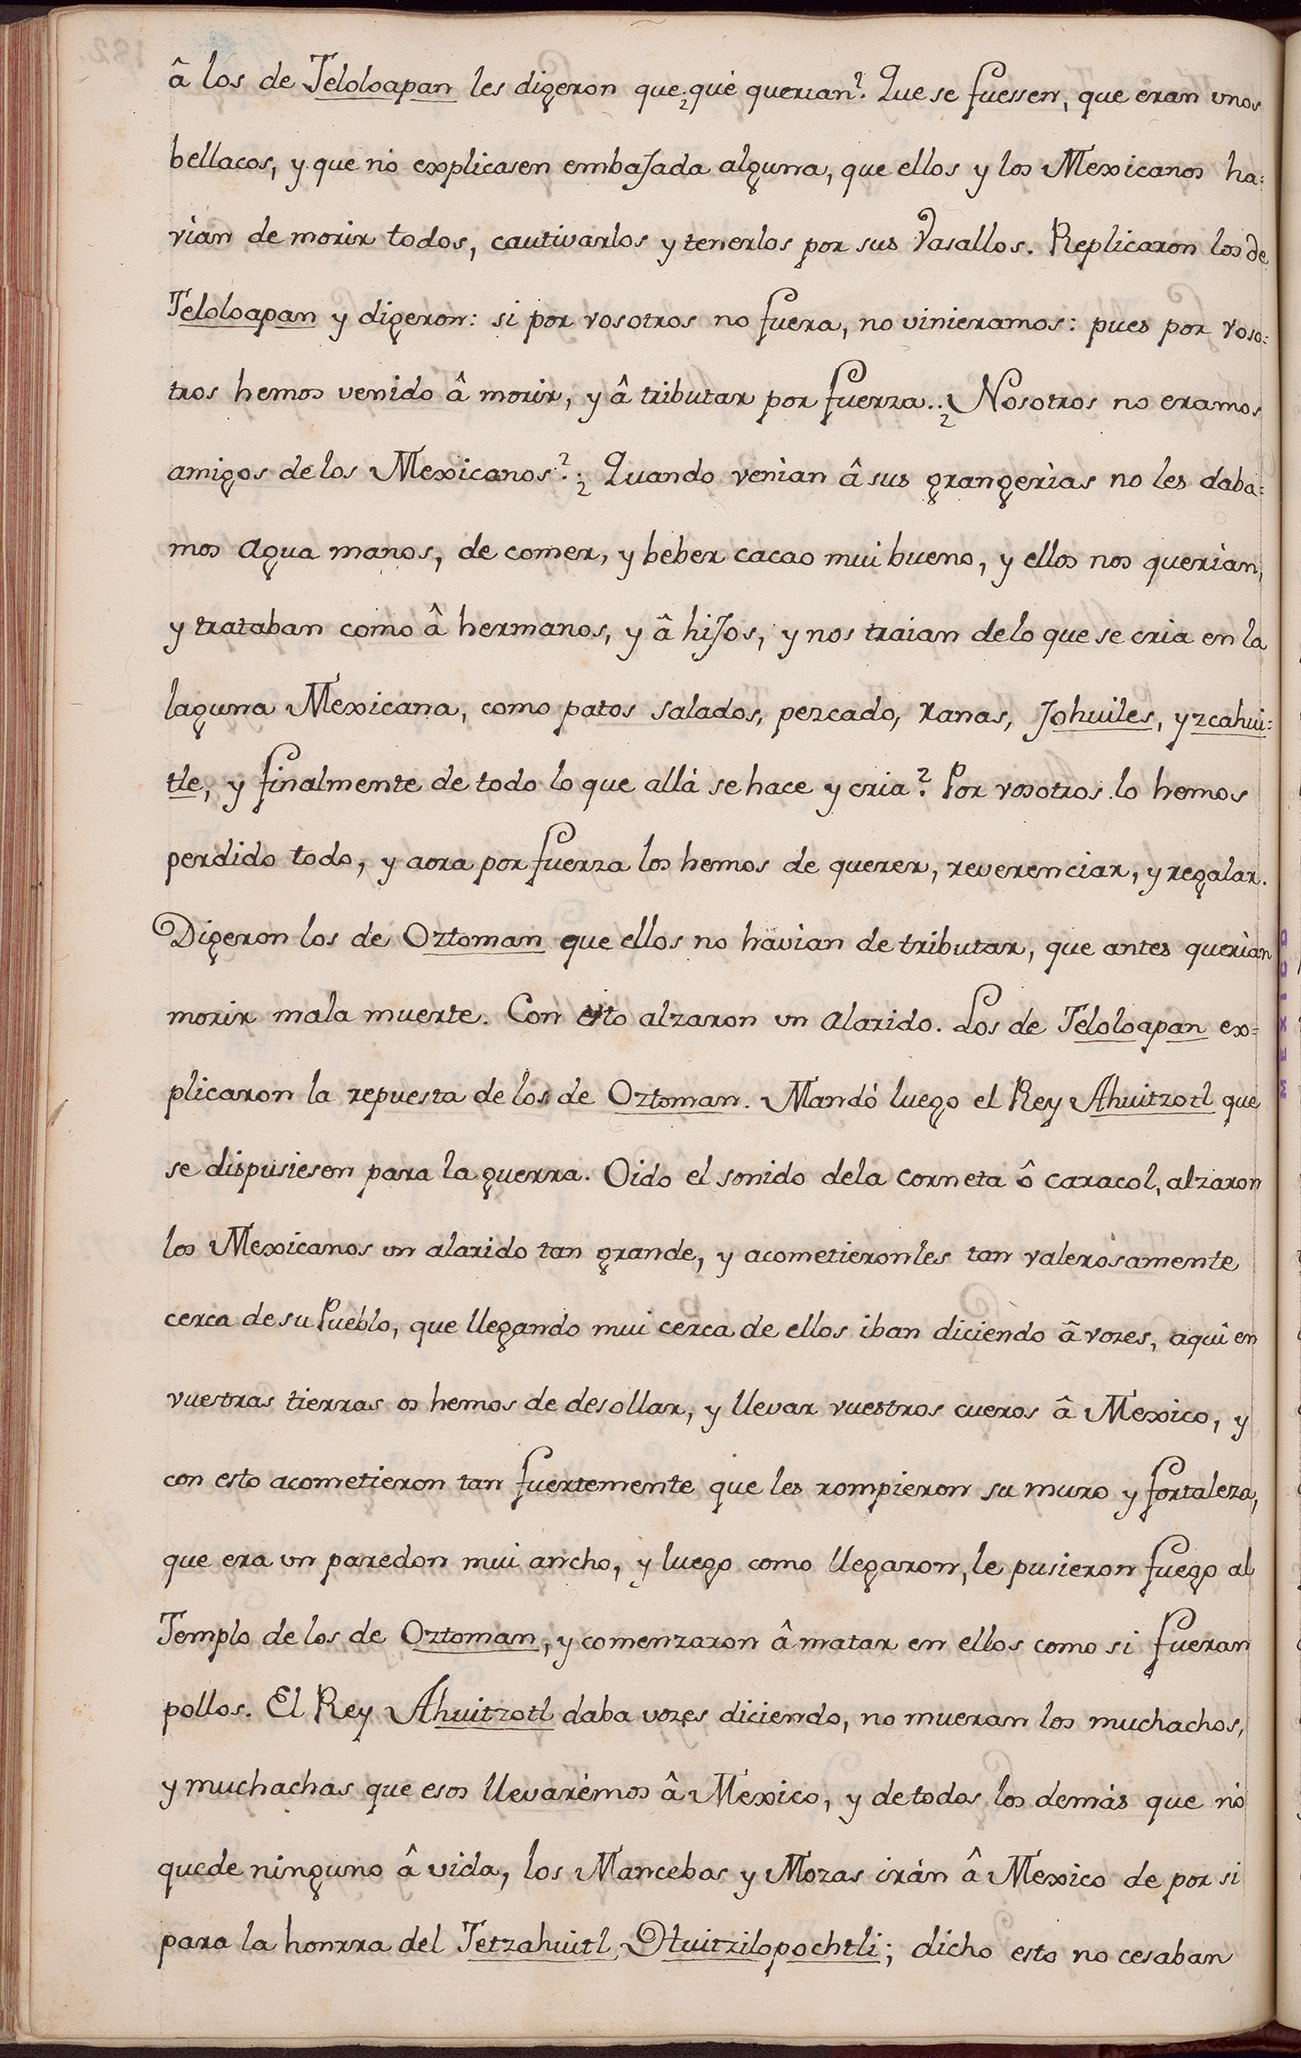 â los de Teloloapan les digeron que ¿qué querian? Que se fuessen, que eran unos
bellacos, y que nó explicasen embaJada alguna, que ellos y los Mexicanos ha=
vian de morir todos, cautivarlos y tenerlos por sus Vasallos. Replicaron los de
Teloloapan y digeron: si por vosotros no fuera, no vinieramos: pues por voso=
tros hemos venido â morir, y â tributar por fuerza.. ¿Nosotros no eramos
amigos de los Mexicanos? ¿Quando venian â sus grangerias no les daba=
mos agua manos, de comer, y beber cacao mui bueno, y ellos nos querian,
y trataban como â hermanos, y â hiJos, y nos traian de lo que se cria en la
laguna Mexicana, como patos salados, pezcado, ranas, Johuiles, yzcahui=
tle, y finalmente de todo lo que allá se hace y cria? Por vosotros lo hemos
perdido todo, y aora por fuerza los hemos de querer, reverenciar, y regalar.
Digeron los de Oztoman que ellos no havian de tributar, que antes querian
morir mala muerte. Con esto alzaron un alarido. Los de Teloloapan ex=
plicaron la repuesta de los de Oztoman. Mandó luego el Rey Ahuitzotl que
se dispusiesen para la guerra. Oido el sonido dela corneta ô caracol, alzaron
los Mexicanos un alarido tan grande, y acometieronles tan valerosamente
cerca de su Pueblo, que llegando mui cerca de ellos iban diciendo â vozes, aqui en
vuestras tierras os hemos de desollar, y llevar vuestros cueros â Mexico, y
con esto acometieron tan fuertemente que les rompieron su muro y fortaleza,
que era un paredon mui ancho, y luego como llegaron, le pusieron fuego al
Templo de los de Oztoman, y comenzaron â matar en ellos como si fueran
pollos. El Rey Ahuitzotl daba vozes diciendo, no mueran los muchachos,
y muchachas que esos llevarémos â Mexico, y de todos los demás que nó
quede ninguno â vida, los Mancebos y Mozas irán â Mexico de por si
para la honrra del Tetzahuitl Huitzilopochtli; dicho esto no cesaban
MEXICO